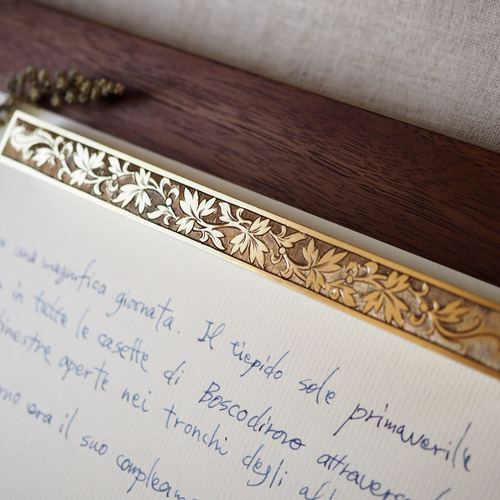 una magnifica giornata. Il tiepido sole primaverile
in tutte le casette di Boscodirovo attravers
finestre aperte nei tronchi degli al
rno era il suo compleann